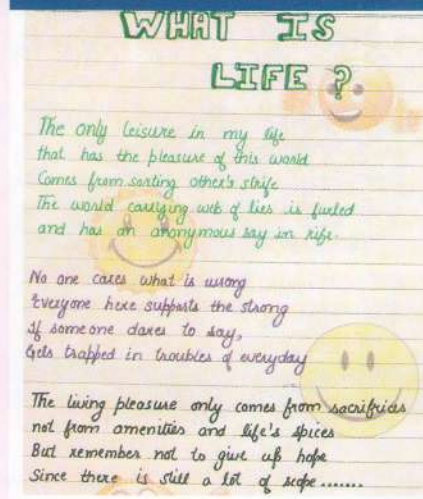 WHAT IS
LIFE ?
The only leisure in my life
that has the pleasure of this world
Comes from sorting other's strife
The world carrying web of lies is furled
and has an anonymous say in rife.
No one cares what is wrong
Everyone here supports the strong
If someone dares to say,
Gets trapped in troubles of everyday
The living pleasure only comes from sacrifries
not from amenities and life's spices
But remember not to give up hope
Since there is still a lot of scope.......